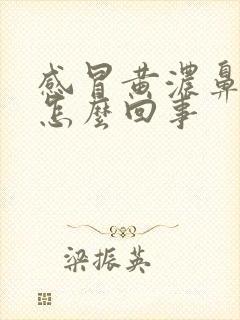 感冒黄濃鼻
怎麼回事
梁振英